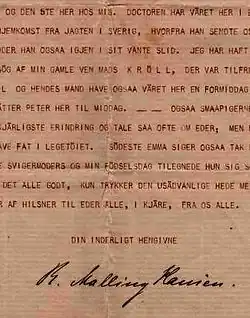 OG DEN 5TE HER HOS MIS. DOCTOREN HAR VÆRET HER I
HJEMKOMST FRA JAGTEN I SVERIG, HVORFRA HAN SENDTE OS
DER HAN OGSAA IGJEN I SIT VANTE SLID. JEG HAR HAFT
SÖG AF MIN GAMLE VEN MADS KRÖLL, DER VAR TILFR
L OG HENDES MAND HAVE OGSAA VÆRET HER EN FORMIDDAG
ÅTTER PETER HER TIL MIDDAG. ___ OGSAA SMAAPIGERNE
KJÆRLIGSTE ERINDRING OG TALE SAA OFTE OM EDER; MEN
AVE FAT I LEGETÖIET. SÖDESTE EMMA SIGER OGSAA TAK
E SVIGERMODERS OG MIN FÖDSELSDAG TILEGNEDE HUN SIG S
DET ALLE GODT, KUN TRYKKER DEN USÆDVANLIGE HEDE ME
R AF HILSNER TIL EDER ALLE, I KJÆRE, FRA OS ALLE.
DIN INDERLIGT HENGIVNE
R. Malling Hansen.